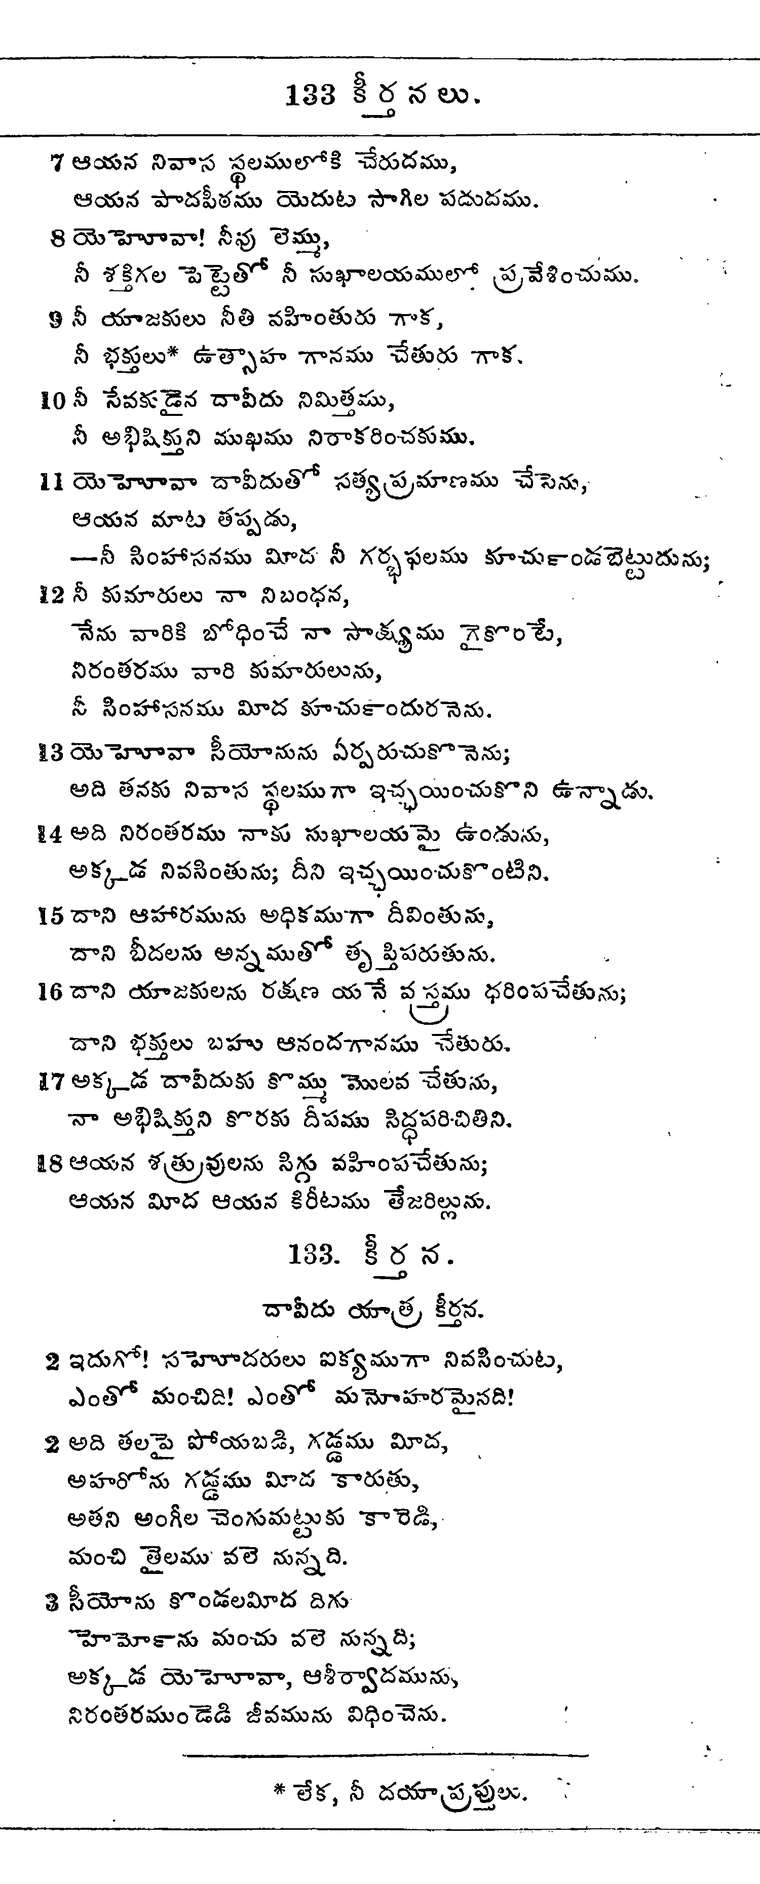 133 కీర్తనలు.
7 ఆయన నివాస స్థలములోకి చేరుదము,
ఆయన పాదపీఠము యెదుట సాగిల పడుదము.
8 యెహెూవా! నీవు లెమ్ము,
నీ శక్తిగల పెట్టెతో నీ సుఖాలయములో ప్రవేశించుము.
9 నీ యాజకులు నీతి వహింతురు గాక,
నీ భక్తులు* ఉత్సాహ గానము చేతురు గాక.
10 నీ సేవకుడైన దావీదు నిమిత్తము,
నీ అభిషిక్తుని ముఖము నిరాకరించకుము.
11 యెహెూవా దావీదుతో సత్యప్రమాణము చేసెను,
ఆయన మాట తప్పడు,
—నీ సింహాసనము మీద నీ గర్భఫలము కూచుకాండబెట్టుదును;
12 నీ కుమారులు నా నిబంధన,
నేను వారికి బోధించే నా సాక్ష్యము గైకొంటే,
నిరంతరము వారి కుమారులును,
నీ సింహాసనము మీద కూచుకాందురనెను.
13 యెహెూవా సీయోనును యేర్పరుచుకొనెను;
అది తనకు నివాస స్థలముగా ఇచ్ఛయించుకొని ఉన్నాడు.
14 అది నిరంతరము నాకు సుఖాలయమై ఉండును,
అక్కడ నివసింతును; దీని ఇచ్ఛయించుకొంటిని.
15 దాని ఆహారమును అధికముగా దీవింతును,
దాని బీదలను అన్నముతో తృప్తిపరుతును.
16 దాని యాజకులను రక్షణ యనే వస్త్రము ధరింపచేతును;
దాని భక్తులు బహు ఆనందగానము చేతురు.
17 అక్కడ దావీదుకు కొమ్ము మొలవ చేతును,
నా అభిషిక్తుని కొరకు దీపము సిద్ధపరిచితిని.
18 ఆయన శత్రువులను సిగ్గు వహింపచేతును;
ఆయన మీద ఆయన కిరీటము తేజరిల్లును.
133. కీర్తన.
దావీదు యాత్ర కీర్తన.
2 ఇదుగో! సహెూదరులు ఐక్యముగా నివసించుట,
ఎంతో మంచిది! ఎంతో మనోహరమైనది!
2 అది తలపై పోయబడి, గడ్డము మీద,
అహరోను గడ్డము మీద కారుతు,
అతని అంగీల చెంగుమట్టుకు కారెడి,
మంచి తైలము వలె నున్నది.
3 సీయోను కొండలమీద దిగు
హెమోకాను మంచు వలె నున్నది;
అక్కడ యెహెూవా, ఆశీర్వాదమును,
నిరంతరముండెడి జీవమును విధించెను.
* లేక, నీ దయాప్రప్తులు.